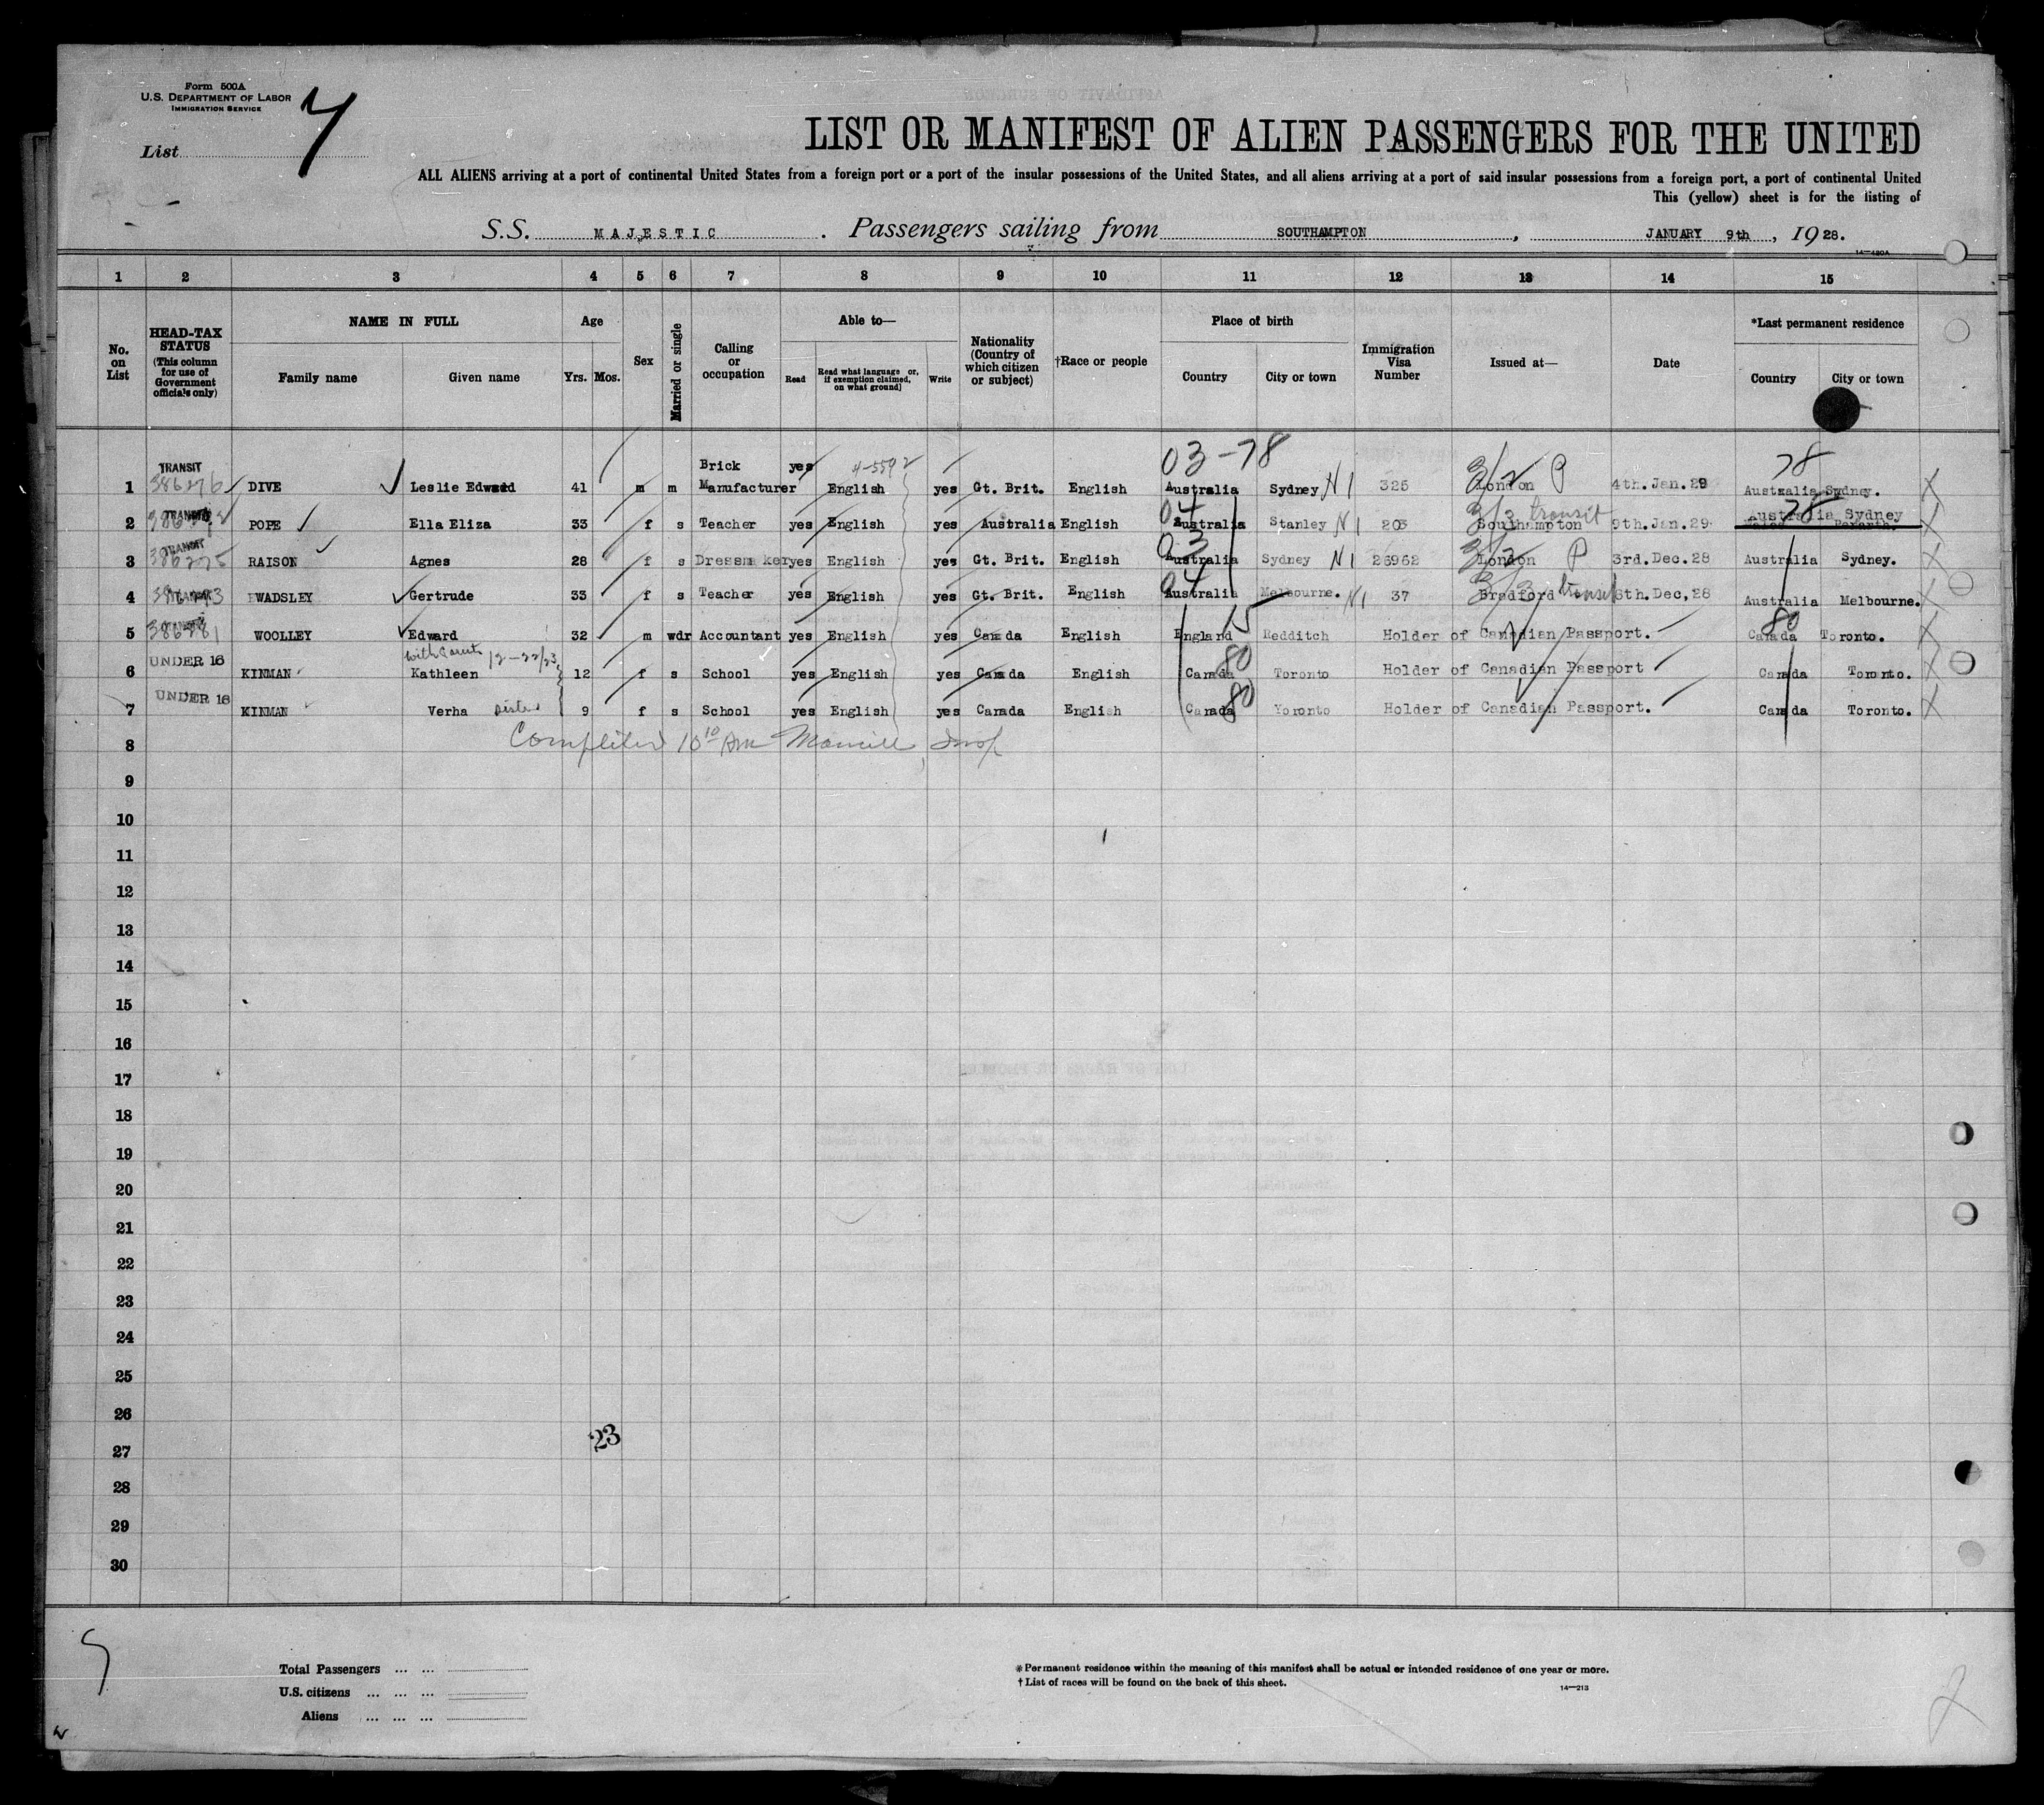 Form 500A
U.S. DEPARTMENT OF LABOR
IMMIGRATION SERVICE
List 7
LIST OR MANIFEST OF ALIEN PASSENGERS FOR THE UNITED
ALL ALIENS arriving at a port of continental United States from a foreign port or a port of the insular possessions of the United States, and all aliens arriving at a port of said insular possessions from a foreign port, a port of continental United
This (yellow) sheet is for the listing of
S.S. MAJESTIC. Passengers sailing from SOUTHAMPTON, JANUARY 9th, 1928.
14—430A
1 2 3 4 5 6 7 8 9 10 11 12 13 14 15
No. on List
HEAD-TAX STATUS (This column for use of Government officials only)
NAME IN FULL
Family name Given name
Age
Yrs. Mos.
Sex
Married or single
Calling or occupation
Able to—
Read Read what language or, if exemption claimed, on what ground) Write
Nationality (Country of which citizen or subject)
†Race or people
Place of birth
Country City or town
Immigration Visa Number
Issued at—
Date
*Last permanent residence
Country City or town
03-78 3/2 P 78
1 TRANSIT 386276 DIVE Leslie Edward 41 m m Brick Manufacturer yes English yes Gt. Brit. English Australia Sydney N1 325 London 4th. Jan. 29 Australia Sydney. X
2 TRANSIT POPE Ella Eliza 33 f s Teacher yes English yes Australia English 04 Australia Stanley N1 203 3/3 transit Southampton 9th. Jan. 29 78 Australia Sydney X
3 TRANSIT 386275 RAISON Agnes 28 f s Dressmaker yes English yes Gt. Brit. English 03 Australia Sydney N1 26962 3/2 P London 3rd. Dec. 28 Australia Sydney. X
4 WADSLEY Gertrude 33 f s Teacher yes English yes Gt. Brit. English 04 Australia Melbourne. N1 37 3/3 transit Bradford 8th. Dec, 28 Australia Melbourne. X
5 WOOLLEY Edward 32 m wdr Accountant yes English yes Canada English 15 England Redditch Holder of Canadian Passport. 80 Canada Toronto. X
6 UNDER 16 KINMAN Kathleen 12 f s School yes English yes Canada English 80 Canada Toronto Holder of Canadian Passport Canada Toronto. X
7 UNDER 16 KINMAN Verha sister 9 f s School yes English yes Canada English 80 Canada Yoronto Holder of Canadian Passport. Canada Toronto. X
8
9
10
11
12
13
14
15
16
17
18
19
20
21
22
23
24
25
26
23
27
28
29
30
Total Passengers ... ...
U.S. citizens ... ... ...
Aliens ... ... ...
*Permanent residence within the meaning of this manifest shall be actual or intended residence of one year or more.
†List of races will be found on the back of this sheet.
14—213